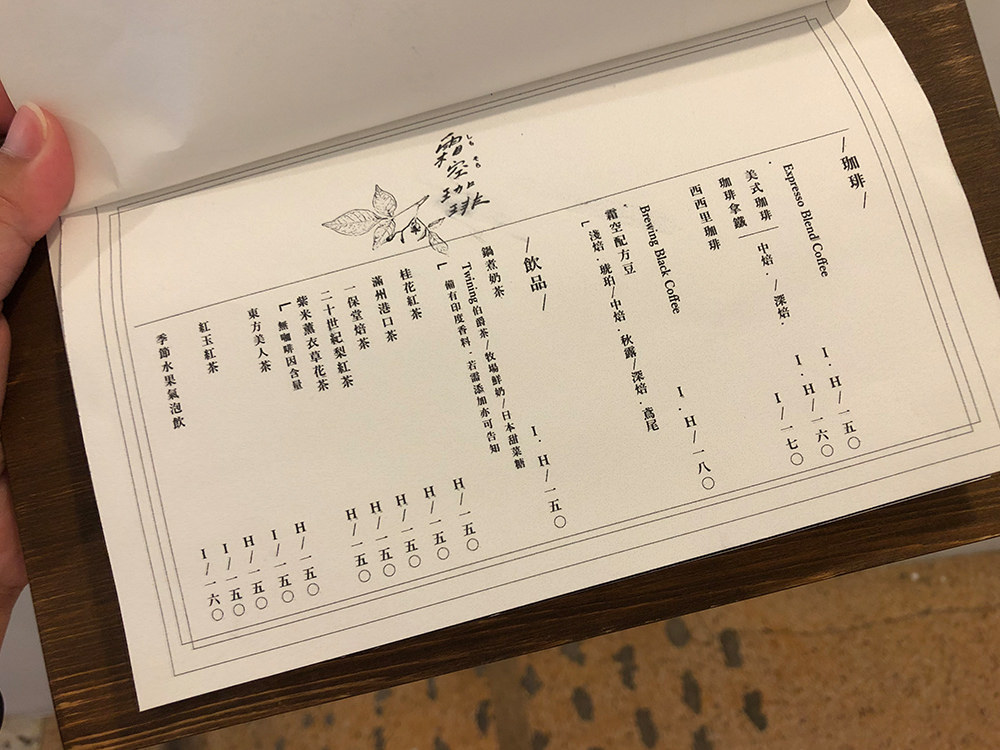 霜空珈琲
しも そら
/珈琲/
Espresso Blend Coffee
美式珈琲 I.H/一五〇
珈琲拿鐵 I.H/一六〇
中焙·/深焙·
西西里珈琲 I/一七〇
Brewing Black Coffee
霜空配方豆 I.H/一八〇
淺焙·琥珀/中焙·秋露/深焙·鳶尾
/飲品/
鍋煮奶茶 I.H/一五〇
Twining伯爵茶/牧場鮮奶/日本甜菜糖
備有印度香料·若需添加亦可告知
桂花紅茶 H/一五〇
滿州港口茶 H/一五〇
一保堂焙茶 H/一五〇
二十世紀梨紅茶 H/一五〇
紫米薰衣草花茶 H/一五〇
無咖啡因含量
東方美人茶 H/一五〇
I/一五〇
紅玉紅茶 H/一五〇
I/一五〇
季節水果氣泡飲 I/一六〇